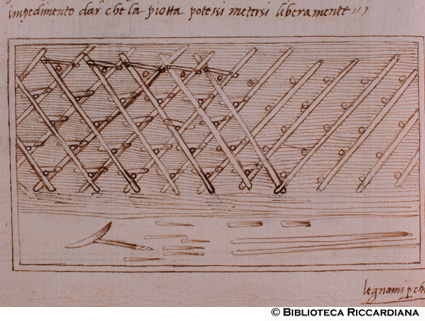 impedimento dar che la piotta potessi metersi liberamente
legnami p che
© BIBLIOTECA RICCARDIANA